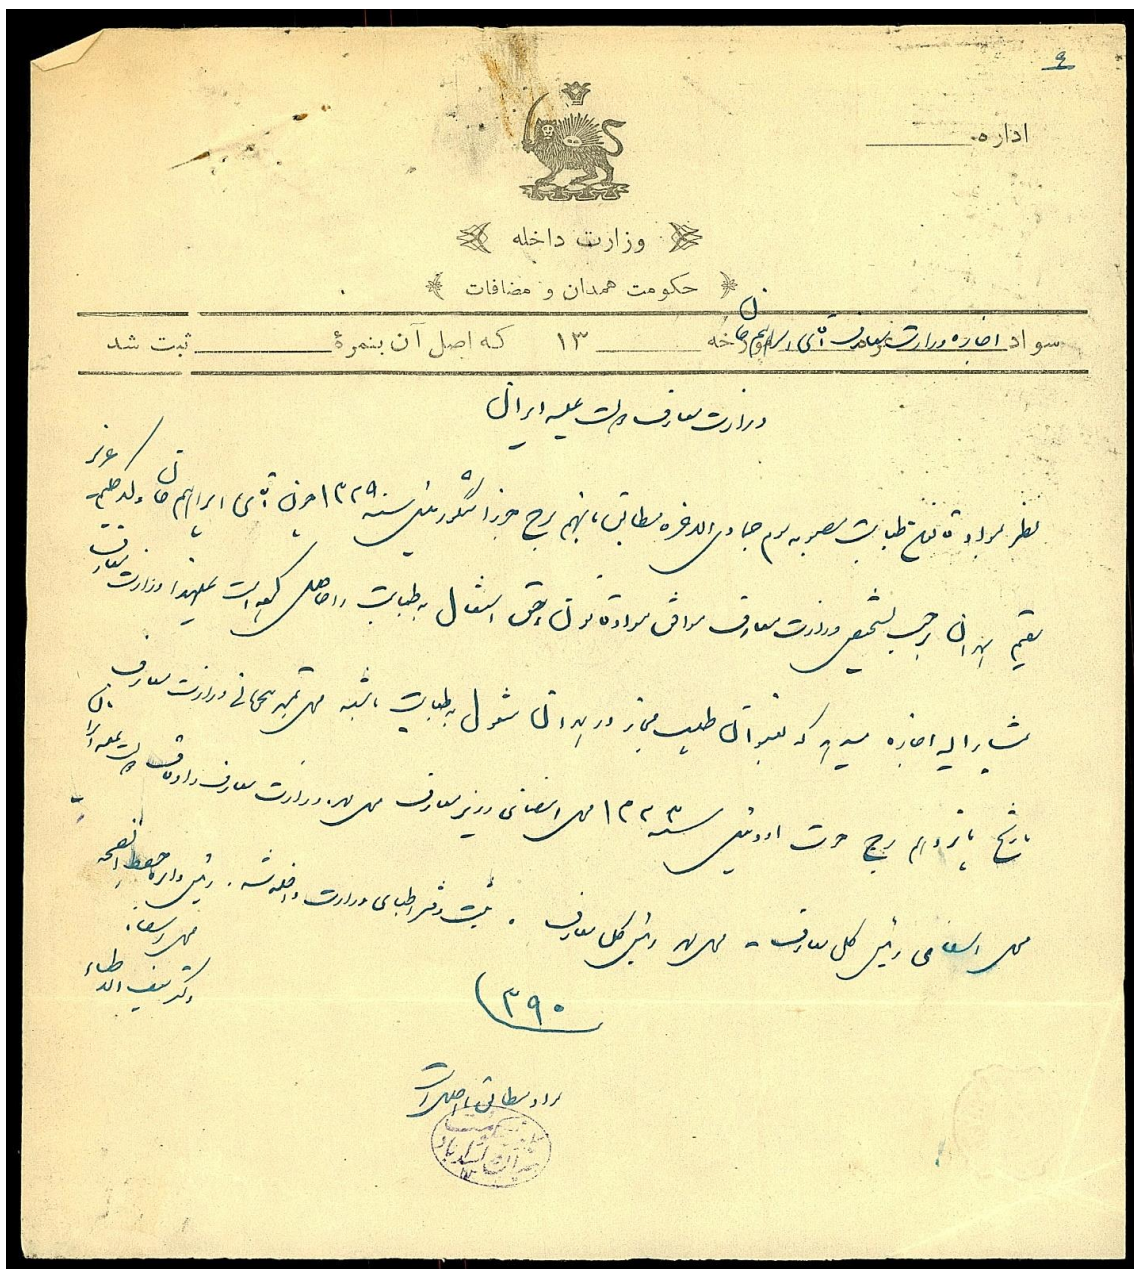 ۹
اداره
وزارت داخله
حکومت همدان و مضافات
سواد اجازه وزارت معارف آقای ابراهیم خان مورخه ۱۳ که اصل آن بنمرهٔ ثبت شد
وزارت معارف دولت علیه ایران
نظر بمواد قانون طبابت مصوبه یازدهم جمادی الاخره مطابق نهم برج جوزا تنگوزئیل سنه ۱۳۲۹ چون آقای ابراهیم خان ولد حکیم عزیز
مقیم همدان بر حسب تشخیص وزارت معارف موافق مواد قانون حق اشتغال به طبابت را حاصل کرده است علیهذا وزارت معارف
بمشارالیه اجازه میدهد که بعنوان طبیب مجاز در همدان مشغول به طبابت باشد محل تمبر مجانی وزارت معارف
بتاریخ پانزدهم برج حوت اودئیل سنه ۱۳۳۲ محل امضای وزیر معارف محل مهر وزارت معارف و اوقاف دولت علیه ایران
محل امضای رئیس کل معارف - محل مهر رئیس کل معارف . ثبت دفتر اطبای وزارت داخله شد . رئیس دایره حفظ الصحه
محل امضاء
دکتر سیف الاطباء
(۳۹۰
سواد مطابق با اصل است